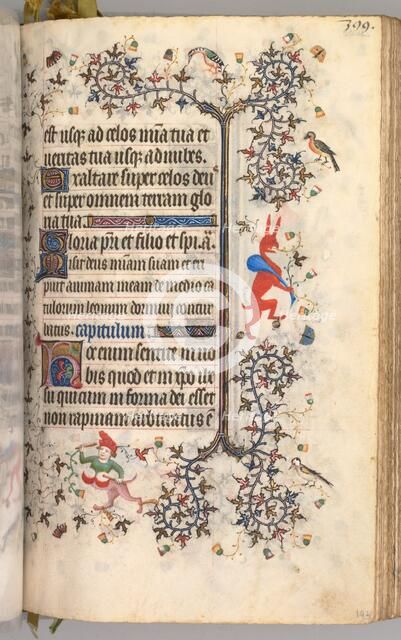 399.
est usq; ad celos mia tua et
veritas tua usq; ad nubes.
Exaltare super celos deus
et super omnem terram glo
ria tua.
Gloria pri et filio et spi. s.
Misit deus miam suam et eri
puit animam meam de medio ca
tulorum leonum dormivi contur
batus. capitulum.
Hoc enim sentite in uo
bis quod et in xpo ihe
su qui cum in forma dei esset
non rapinam arbitratus e
192